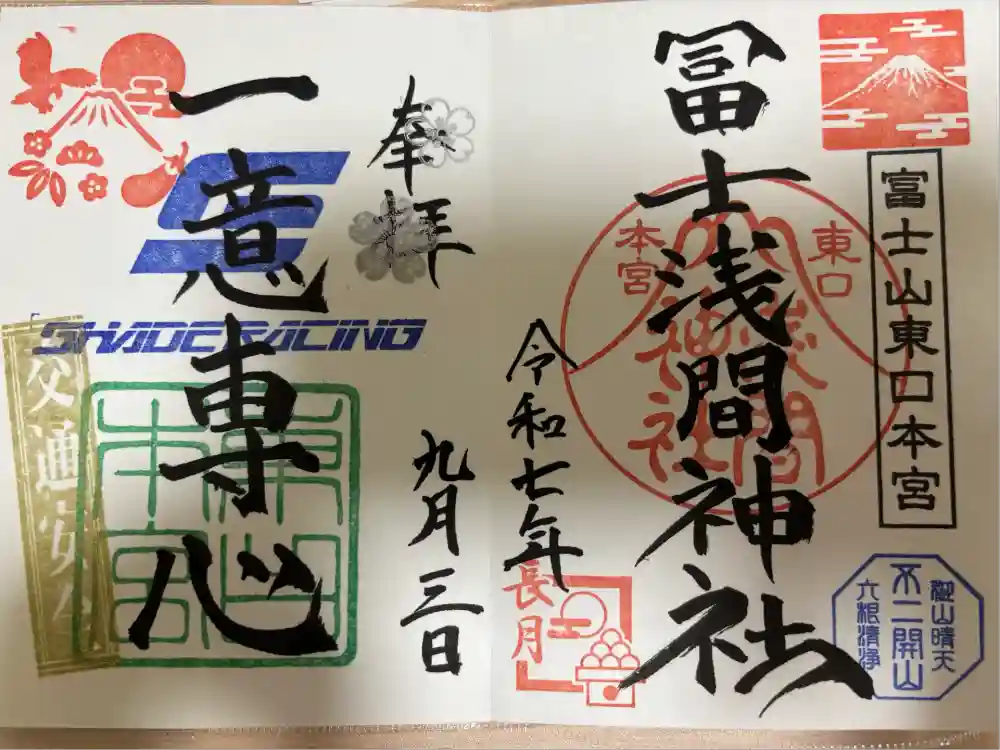 冨士浅間神社
東口
本宮
浅間
神社
富士山東口本宮
御山晴天
不二開山
六根清浄
令和七年
長月
九月三日
奉拝
一意専心
SHADE RACING
東口
本宮
交通安全